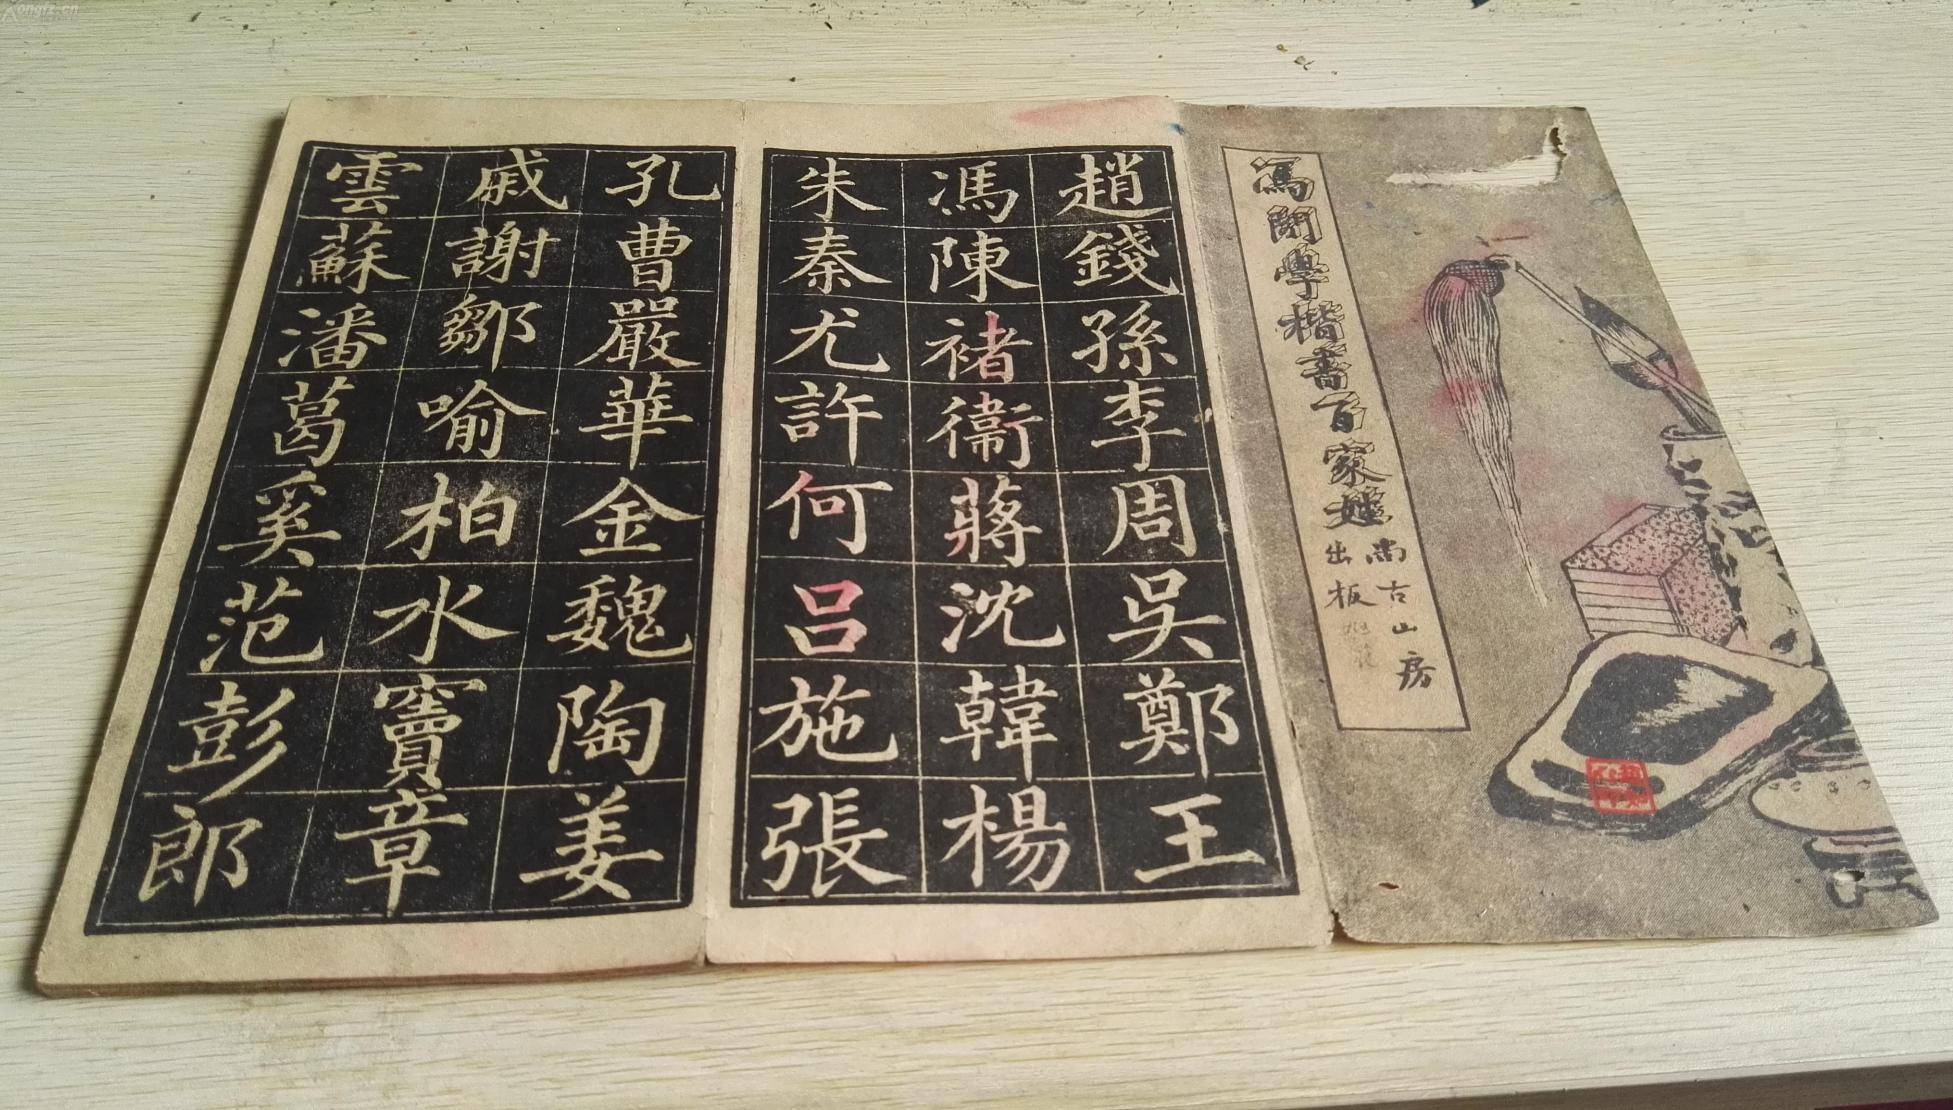 馮開學楷書百家姓
尚古山房
出板
趙錢孫李周吳鄭王
馮陳褚衛蔣沈韓楊
朱秦尤許何呂施張
孔曹嚴華金魏陶姜
戚謝鄒喻柏水竇章
雲蘇潘葛奚范彭郎